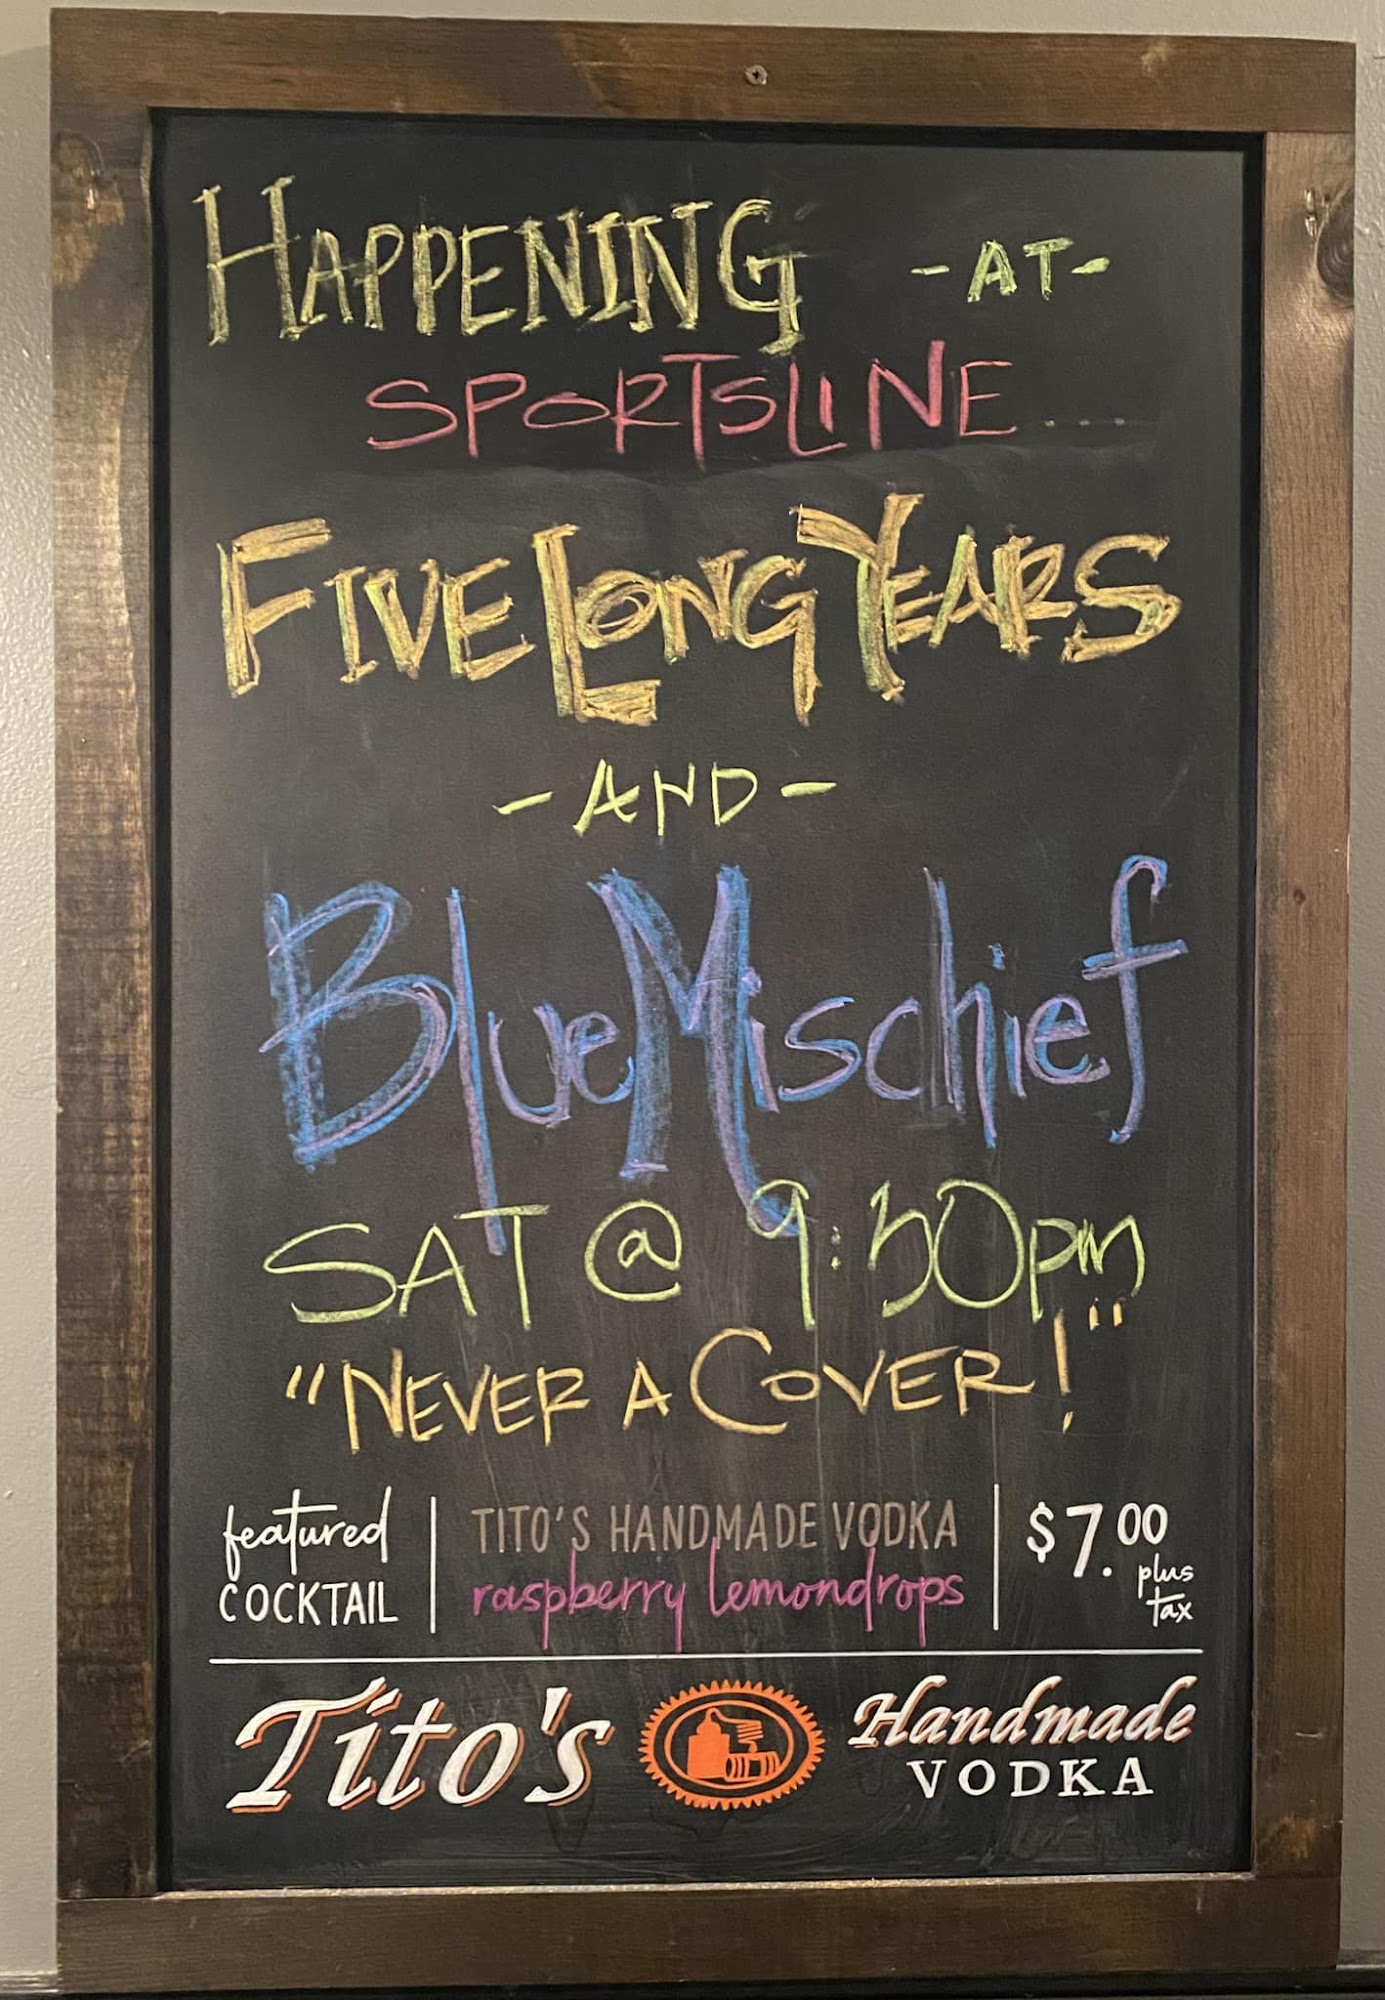 HAPPENING -AT-
SPORTSLINE....
FIVE LONG YEARS
-AND-
Blue Mischief
SAT @ 9:30pm
"NEVER A COVER!"
featured
COCKTAIL
TITO'S HANDMADE VODKA
raspberry lemondrops
$7.00
plus
tax
Tito's Handmade
VODKA